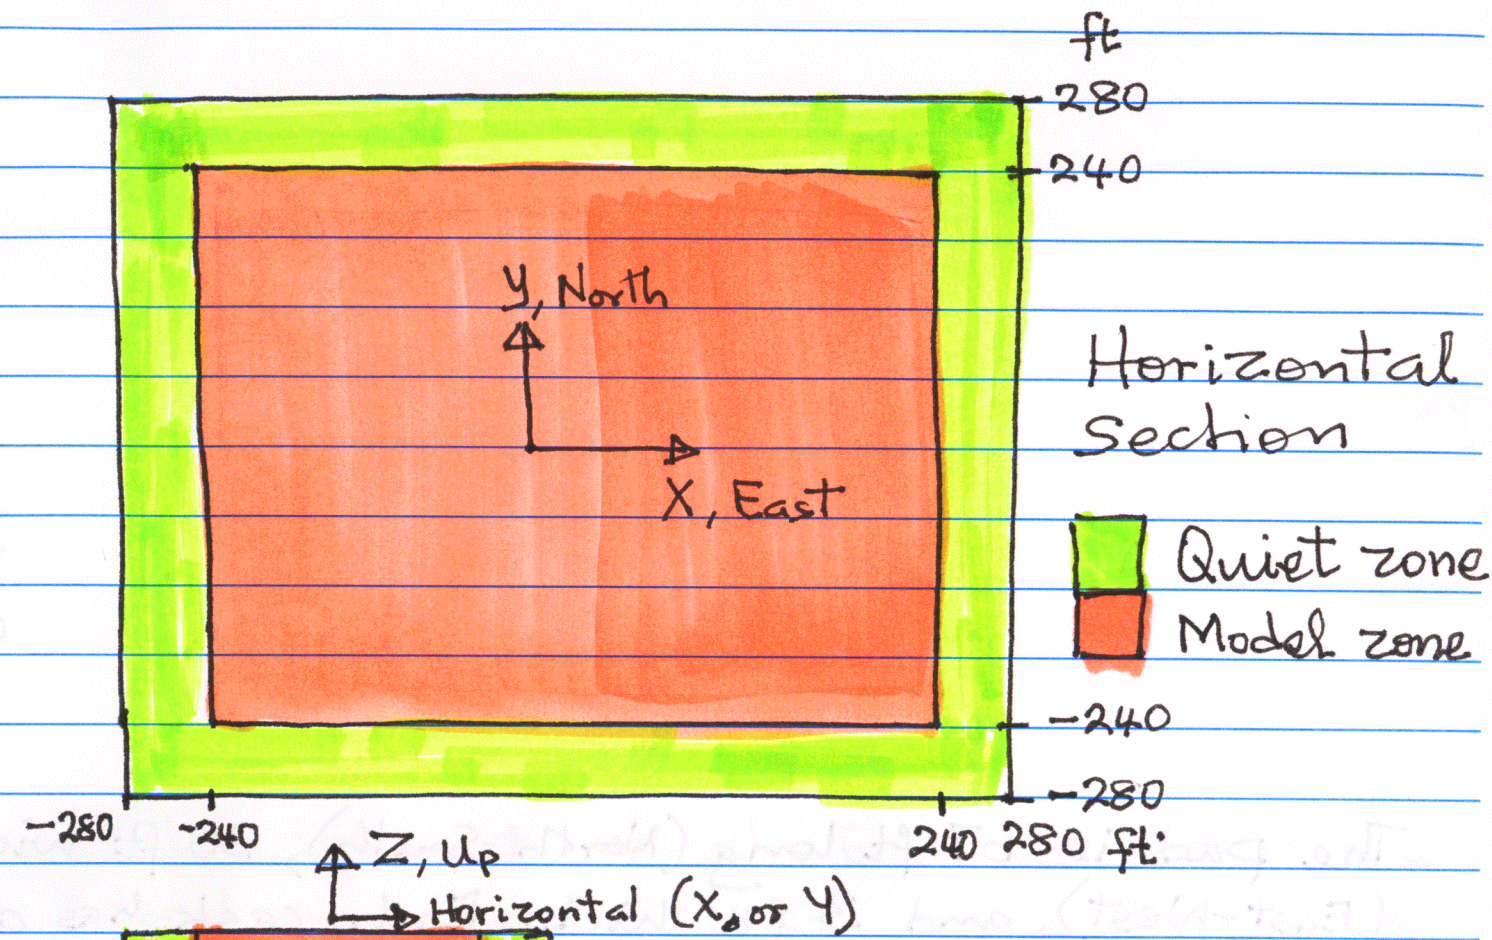 ft
280
240
Y, North
Horizontal
section
X, East
Quiet zone
Model zone
-240
-280
-280 -240 240 280 ft.
Z, Up
Horizontal (X, or Y)